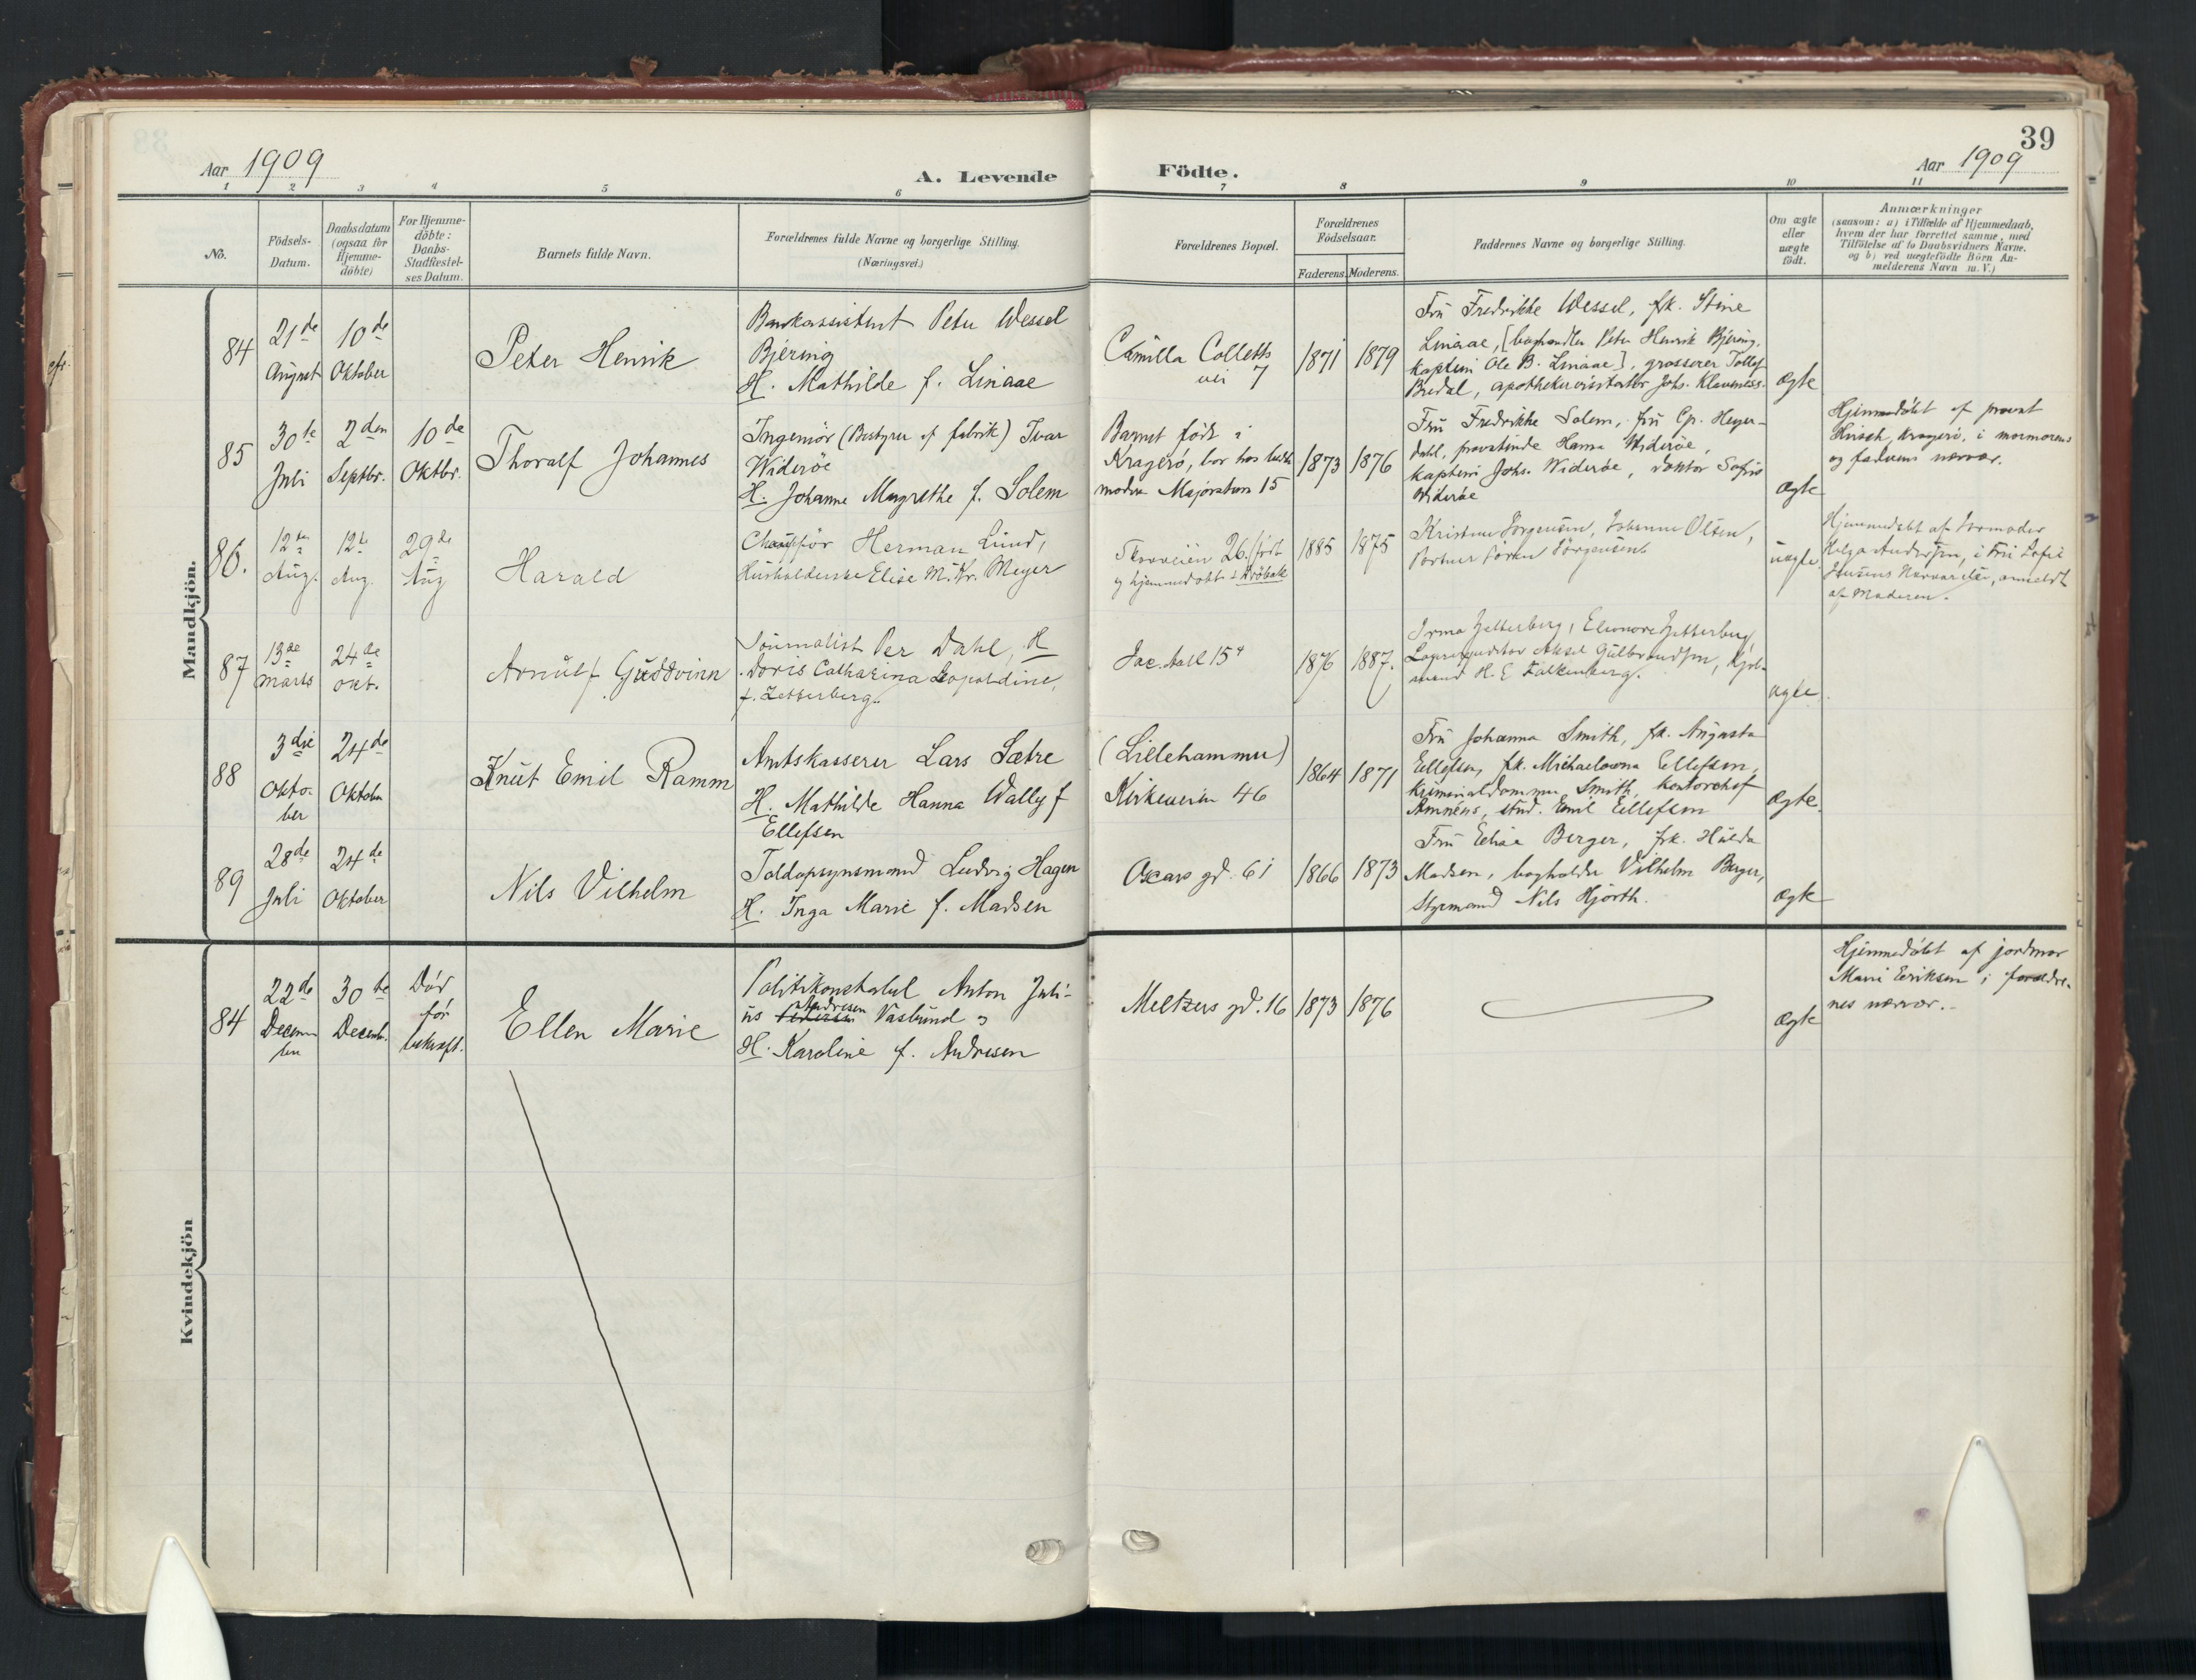 39
Aar 1909
A. Levende
Födte.
Aar 1909
1 2 3 4 5 6 7 8 9 10 11
No.
Födsels-
Datum.
Daabsdatum
(ogsaa for
Hjemme-
döbte)
For Hjemme-
döbte:
Daabs-
Stadfæstel-
ses Datum.
Barnets fulde Navn.
Forældrenes fulde Navne og borgerlige Stilling.
(Næringsvei.)
Forældrenes Bopæl.
Forældrenes
Födselsaar.
Faderens. Moderens.
Faddernes Navne og borgerlige Stilling.
Om ægte
eller
uægte
födt.
Anmærkninger
(saasom: a) i Tilfælde af Hjemmedaab,
hvem der har forrettet samme, med
Tilföielse af to Daabsvidners Navne.
og b) ved uægtefödte Börn An-
melderens Navn m. V.)
Mandkjön.
84
21de
August
10de
Oktober
Peter Henrik
Bankassistent Peter Wessel
Bjering
H. Mathilde f. Linaae
Camilla Colletts
vei 7
1871
1879
Fru Fredrikke Wessel, frk. Stine
Linaae, [boghandler Peter Henrik Bjering,
kaptein Ole B. Linaae], grosserer Tollef
Bredal, apothekervisitator Johs. Klaveness.
Ægte
85
30te
Juli
2den
Septbr.
10de
Oktbr.
Thoralf Johannes
Ingeniör (Bestyrer af fabrik) Ivar
Wideröe
H. Johanne Margrethe f. Solem
Barnet födt i
Kragerö, bor hos
moder Majorstuen 15
1873
1876
Fru Fredrikke Solem, fru Cp. Heyer-
dahl, provstinde Hanna Wideröe,
kaptein Johs. Wideröe, doktor Sofus
Wideröe
Ægte
Hjemmedöbt af provst
Hirsch, Kragerö, i mormorens
og faderens nærvær.
86.
12te
Aug.
12te
Aug.
29de
Aug
Harald
Chaufför Herman Lund,
Husholderske Elise M. Kr. Meyer
26. (födt
og hjemmedöbt i Dröbak
1885
1875
Kristine Jörgensen, Johanne Olsen,
Portner Sören Jörgensen
uægte.
Hjemmedöbt af Jormoder
Helga Andersen, i Fru Sofie
Jensens Nærværelse, anmeldt
af Moderen.
87
13de
marts
24de
okt.
Arnulf Guddvinn
Journalist Per Dahl, H
Doris Catharina Leopoldine,
f. Zetterberg.
Jac. Aall 15⁴
1876
1887.
Irma Zetterberg, Eleonore Zetterberg,
Aksel Gulbrandsen, Kjöb-
mand H. E. Falkenberg.
ægte.
88
3die
Okto-
ber
24de
Oktober
Knut Emil Ramm
Amtskasserer Lars Sætre
H. Mathilde Hanna Wally f
Ellefsen
(Lillehammer)
Kirkeveien 46
1864
1871
Fru Johanna Smith, frk. Augusta
Ellefsen, frk. Michaelovna Ellefsen,
Kriminaldommer Smith, kontorchef
Amnéus, stud. Emil Ellefsen
Ægte.
89
28de
Juli
24de
Oktober
Nils Vilhelm
Toldopsynsmand Ludvig Hagen
H. Inga Marie f. Madsen
Oscars gd. 61
1866
1873
Fru Elise Berger, frk. Hulda
Madsen, bogholder Vilhelm Berger,
Styrmand Nils Hjorth.
Ægte
Kvindekjön
84
22de
Decem-
ber
30te
Decemb.
Död
för
bekræft.
Ellen Marie
Politikonstabel Anton Juli-
us Andresen Vasbund og
H. Karoline f. Andresen
Meltzers gd. 16
1873
1876
Ægte
Hjemmedöbt af jordmor
Marie Eriksen i foræaldre-
nes nærvær.